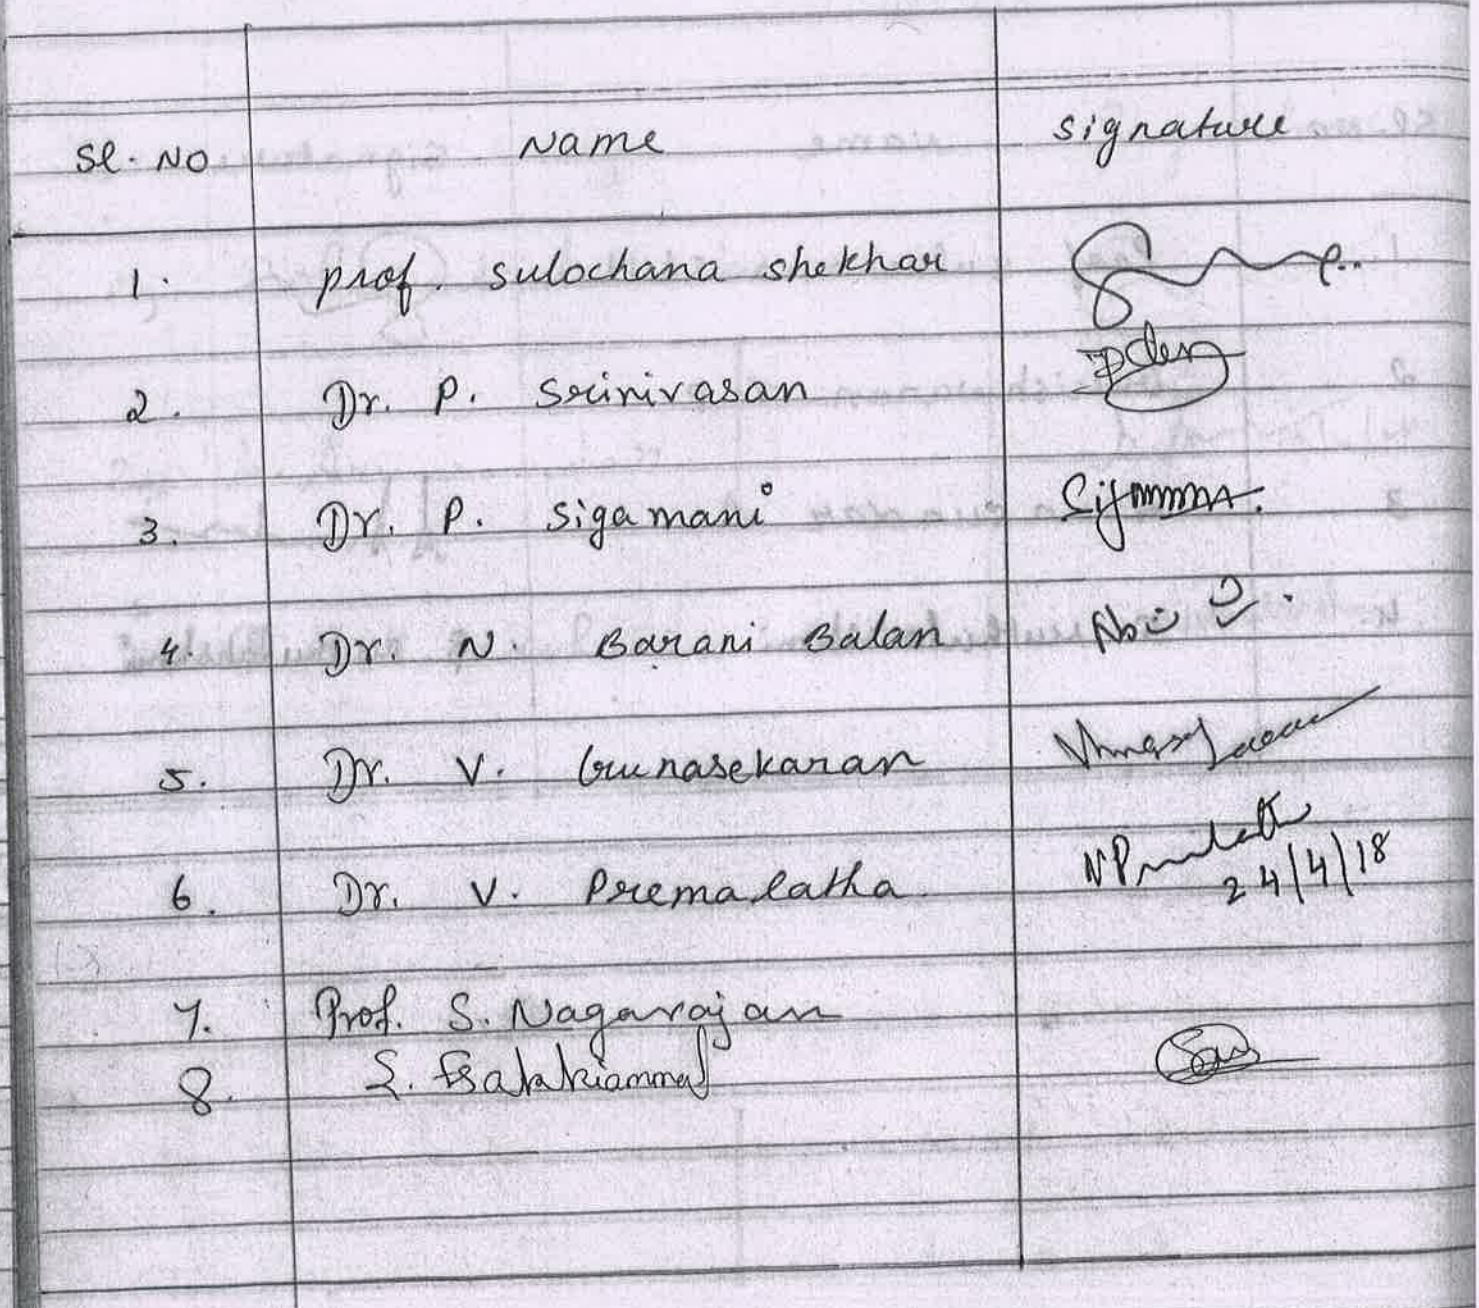 Sl. No Name Signature
1. Prof. Sulochana Shekhar
2. Dr. P. Srinivasan
3. Dr. P. Sigamani
4. Dr. N. Barani Balan
5. Dr. V. Gunasekaran
6. Dr. V. Premalatha
24/4/18
7. Prof. S. Nagarajan
8. S. Esakkiammal